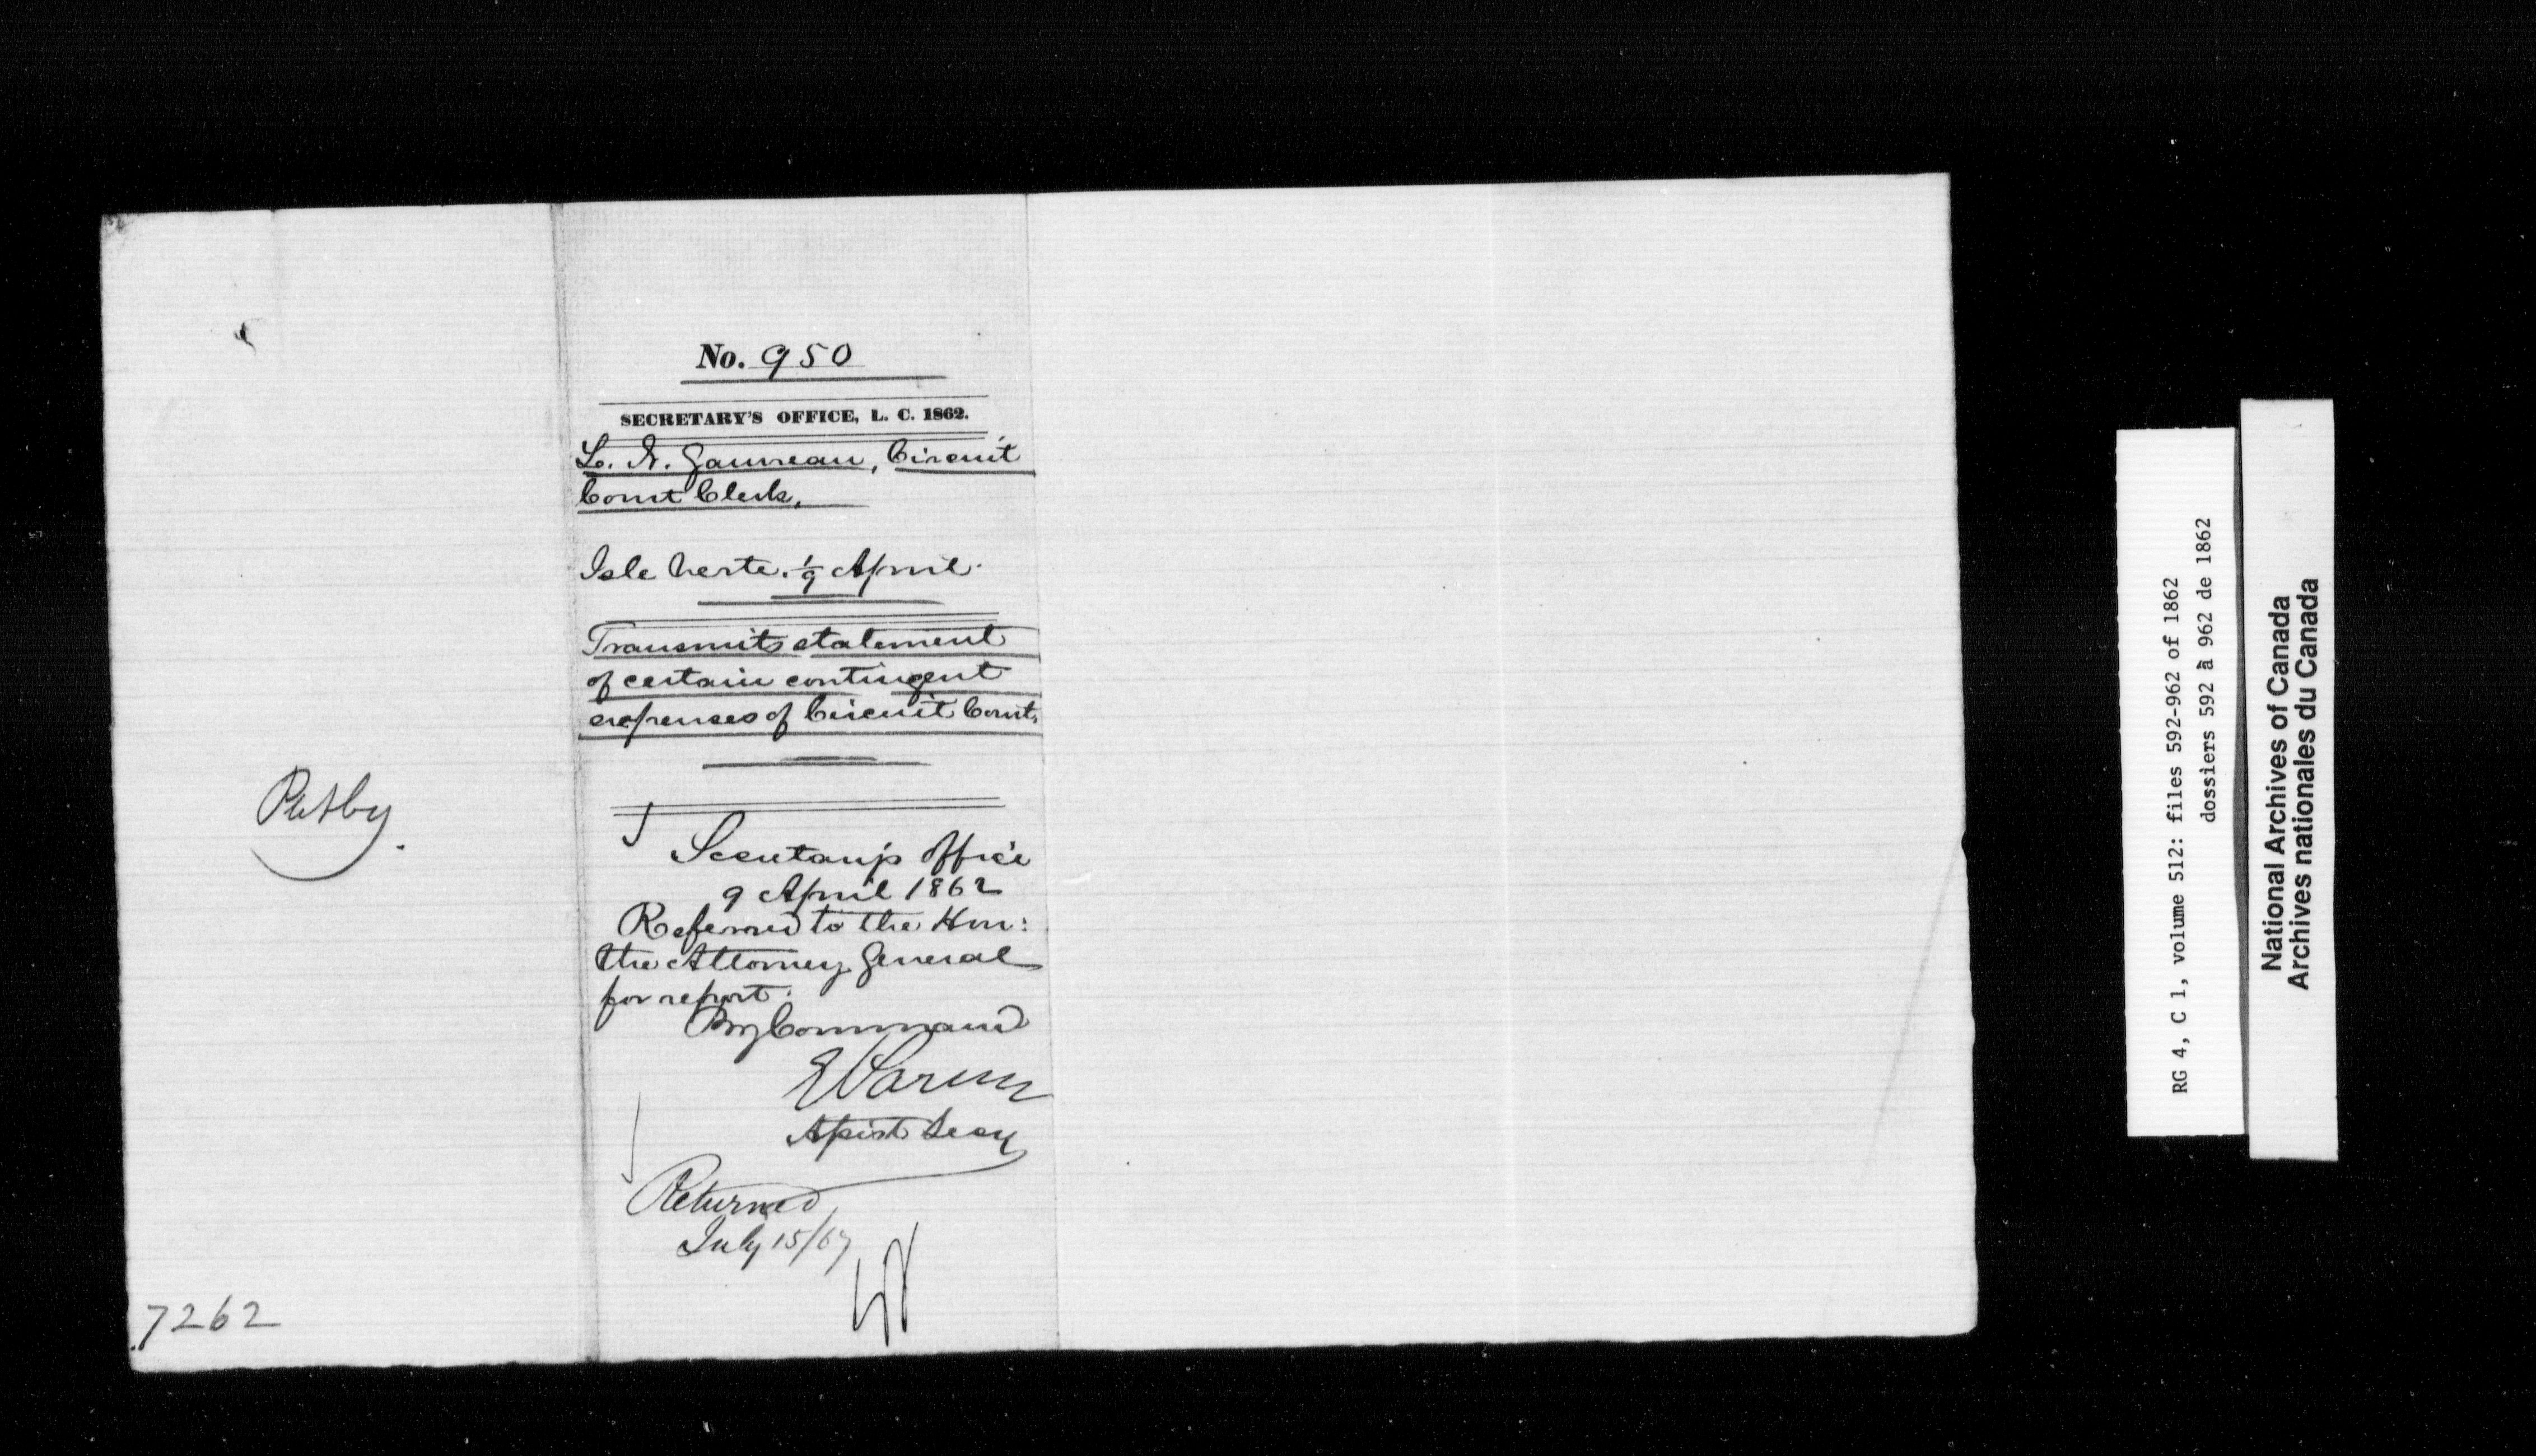 No. 950
SECRETARY'S OFFICE, L. C. 1862.
L. N. Gauvreau, Circuit
Court Clerk,
Isle Verte. 1/9 April.
Transmits statement
of certain contingent
expenses of Circuit Court.
Secretary's Office
9 April 1862
Referred to the Hon:
the Attorney General
for report.
By Command
Assist Secy
Returned
July 15/67
7262
RG 4, C 1, volume 512: files 592-962 of 1862
dossiers 592 à 962 de 1862
National Archives of Canada
Archives nationales du Canada